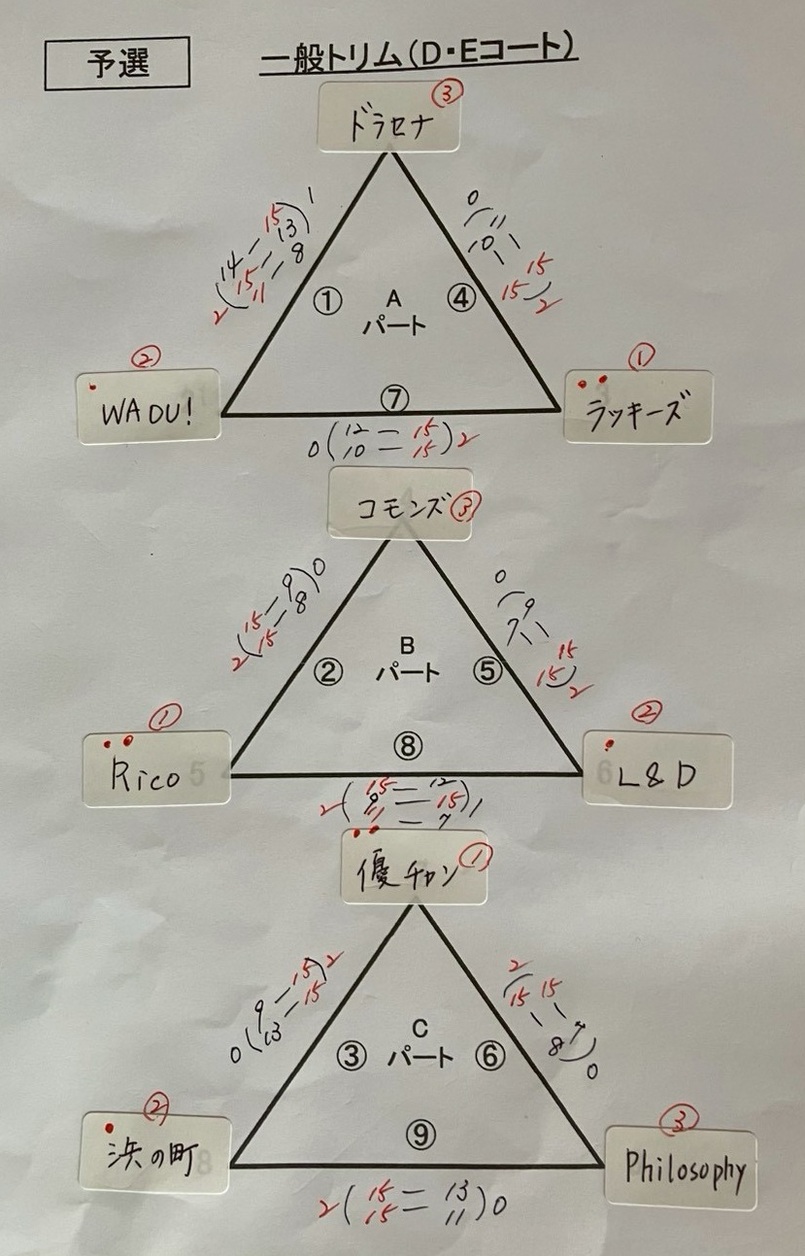 予選
一般トリム(D・Eコート)
ドラセナ ③
14－15
15－13
11－8
2( )1
11－15
10－15
0( )2
① A ④
パート
⑦
② WADU!
① ラッキーズ
0(12＝15)2
10 15
コモンズ ③
15－9
15－8
2( )0
9－15
7－15
0( )2
② B ⑤
パート
⑧
① Rico 5
② 6 L&D
15－12
9－15
11－7
2( )1
優チャン ①
9－15
13－15
0( )2
15－7
15－8
2( )0
③ C ⑥
パート
⑨
② 浜の町 8
③ Philosophy
2(15＝13)0
15 11